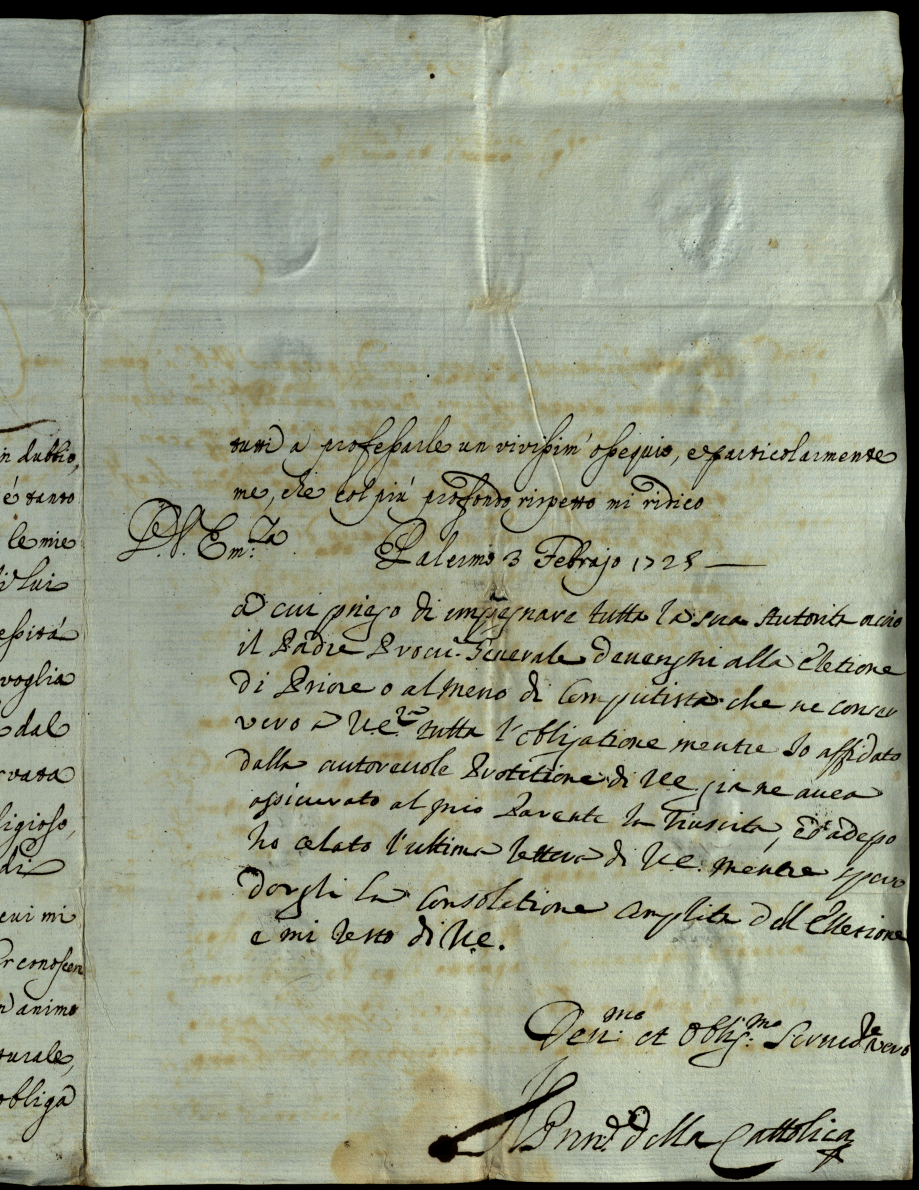 n dubbio,
é tanto
le mie
di lui
essità
voglia
dal
rvata
ligioso,
di
cui mi
r conoscen
n animo
turale,
obliga
tutti a professarle un vivissim' ossequio, e particolarmente
me, che col più profondo rispetto mi ridico
Em.za
Palermo 3 Febrajo 1725
a cui priego di impegnare tutta la sua Autorita acciò
il Padre Procu. Generale devenghi alla Eletione
di Priore o al meno di Computista che ne conser
vero a V.E. tutta l'obligatione mentre Io affidato
dalla autorevole Protetione di V.E. gia ne avea
assicurato al mio Parente la riuscita, ed adesso
ho celato l'ultima lettera di V.E. mentre spero
dargli la Consolatione amplita dell'Elletione
e mi resto di V.E.
Dev.mo et Oblig.mo Servid.re vero
Il Prin.e della Cattolica